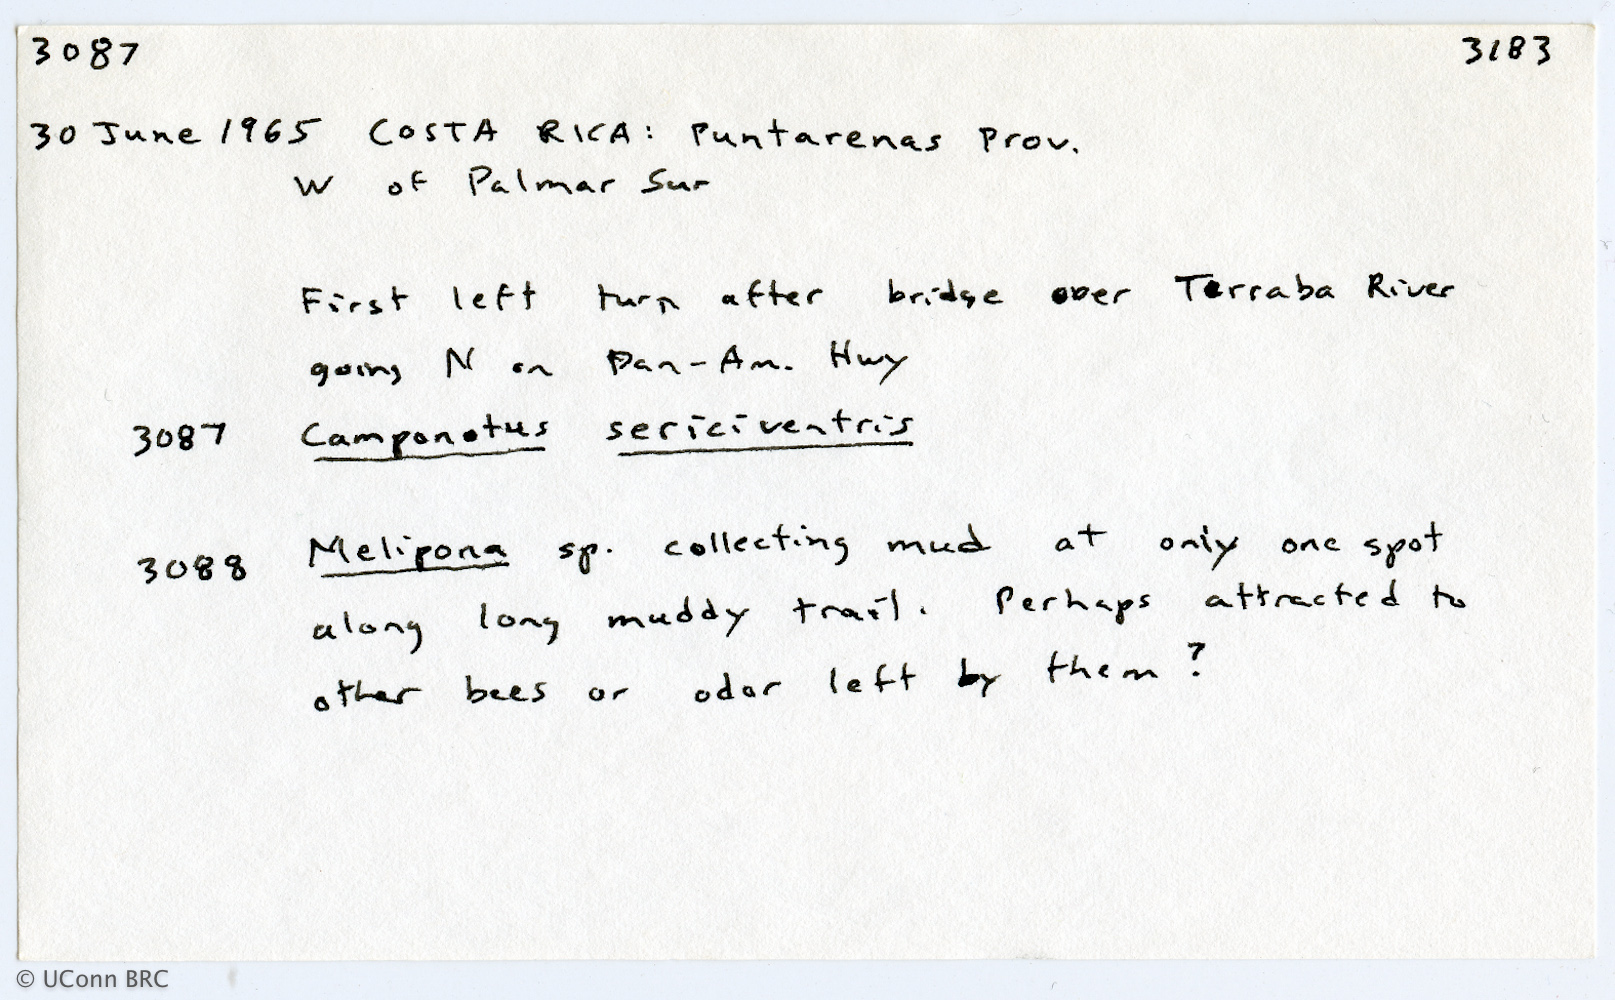 3087 3183
30 June 1965 COSTA RICA: Puntarenas Prov.
W of Palmar Sur
First left turn after bridge over Terraba River
going N on Pan-Am. Hwy
3087 Camponotus sericiventris
3088 Melipona sp. collecting mud at only one spot
along long muddy trail. Perhaps attracted to
other bees or odor left by them?
© UConn BRC